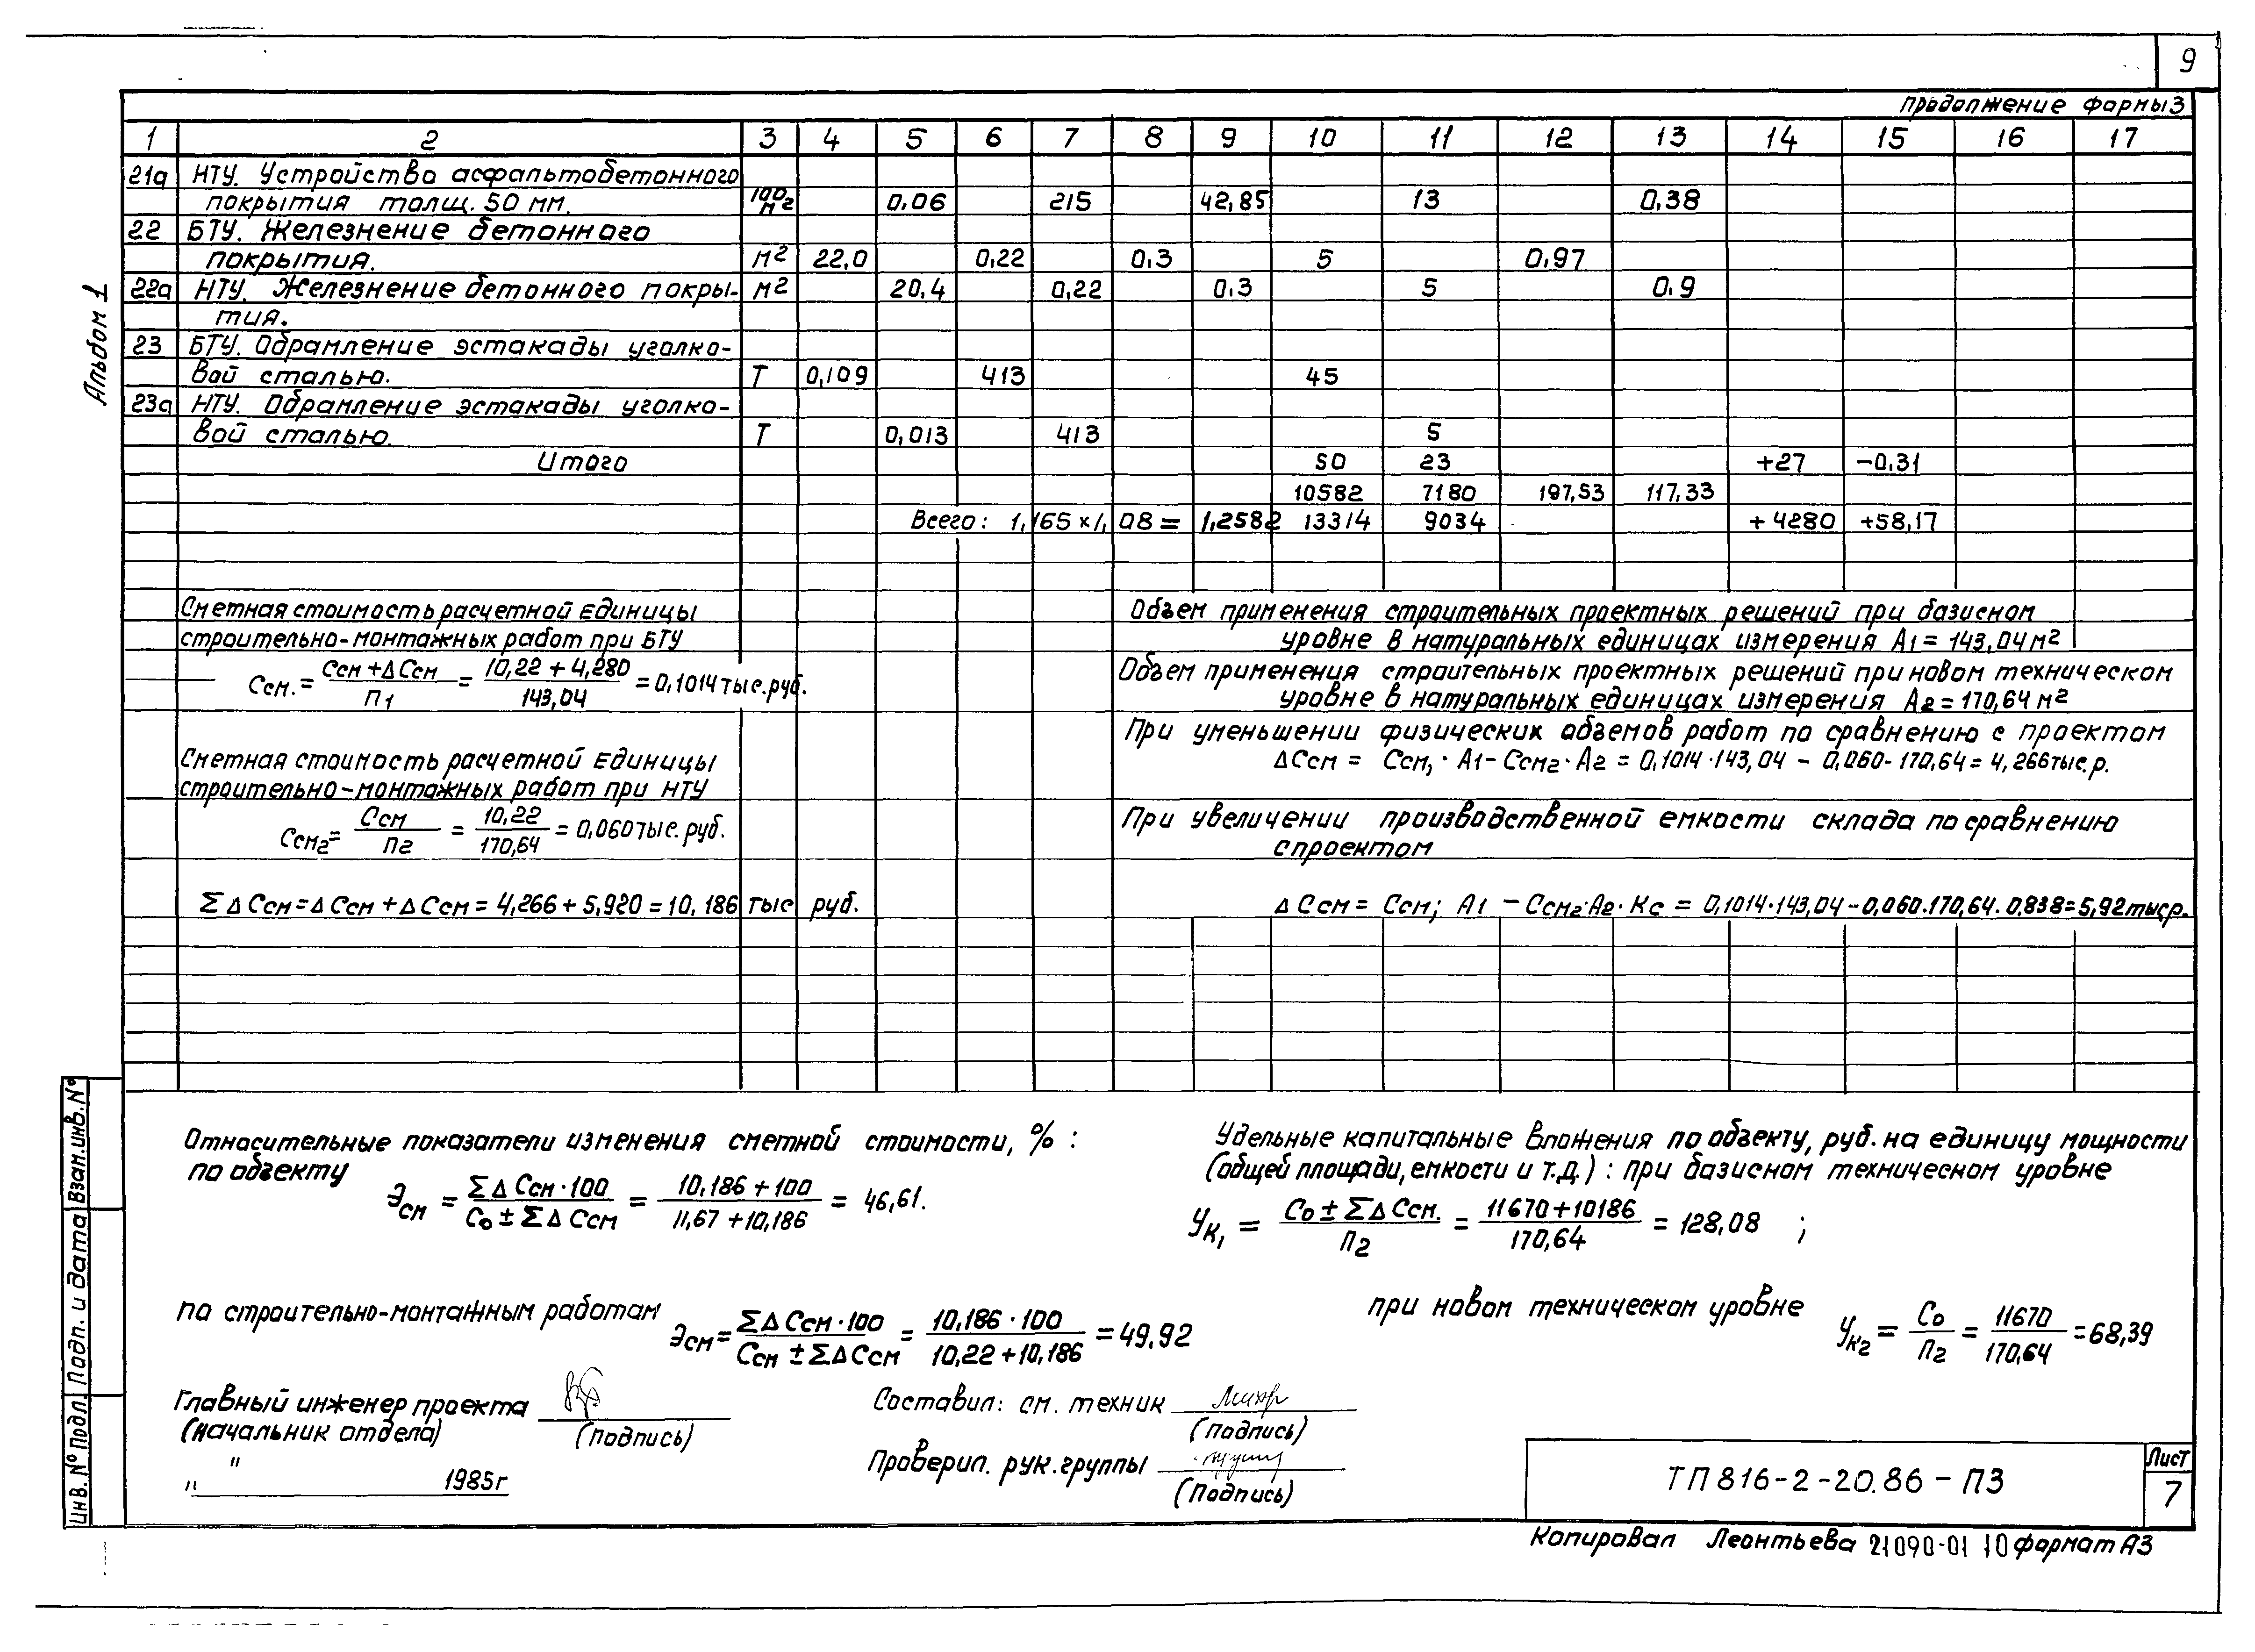 9
продолжение формы 3
1 2 3 4 5 6 7 8 9 10 11 12 13 14 15 16 17
21а НТУ. Устройство асфальтобетонного
покрытия толщ. 50 мм. 100 м2 0,06 215 42,85 13 0,38
22 БТУ. Железнение бетонного
покрытия. м2 22,0 0,22 0,3 5 0,97
22а НТУ. Железнение бетонного покры- м2 20,4 0,22 0,3 5 0,9
тия.
23 БТУ. Обрамление эстакады уголко-
вой сталью. Т 0,109 413 45
23а НТУ. Обрамление эстакады уголко-
вой сталью. Т 0,013 413 5
Итого 50 23 +27 -0,31
10582 7180 197,53 117,33
Всего: 1,165 х 1,08 = 1,2582 13314 9034 +4280 +58,17
Сметная стоимость расчетной единицы
строительно-монтажных работ при БТУ
Ссм. = (Ссм + ΔСсм) / П1 = (10,22 + 4,280) / 143,04 = 0,1014 тыс. руб.
Сметная стоимость расчетной единицы
строительно-монтажных работ при НТУ
Ссм2 = Ссм / П2 = 10,22 / 170,64 = 0,060 тыс. руб.
ΣΔ Ссм = Δ Ссм + Δ Ссм = 4,266 + 5,920 = 10,186 тыс руб.
Объем применения строительных проектных решений при базисном
уровне в натуральных единицах измерения А1 = 143,04 м2
Объем применения строительных проектных решений при новом техническом
уровне в натуральных единицах измерения А2 = 170,64 м2
При уменьшении физических объемов работ по сравнению с проектом
ΔСсм = Ссм1 · А1 - Ссм2 · А2 = 0,1014 · 143,04 - 0,060 - 170,64 = 4,266 тыс. р.
При увеличении производственной емкости склада по сравнению
с проектом
Δ Ссм = Ссм; А1 - Ссм2 · А2 · Кс = 0,1014 · 143,04 - 0,060 . 170,64 . 0,838 = 5,92 тыс р.
Относительные показатели изменения сметной стоимости, % :
по объекту
Эсм = (ΣΔ Ссм · 100) / (Со ± ΣΔ Ссм) = (10,186 + 100) / (11,67 + 10,186) = 46,61.
Удельные капитальные вложения по объекту, руб. на единицу мощности
(общей площади, емкости и т.д.) : при базисном техническом уровне
Ук1 = (Со ± ΣΔ Ссм.) / П2 = (11670 + 10186) / 170,64 = 128,08 ;
по строительно-монтажным работам
Эсм = (ΣΔ Ссм · 100) / (Ссм ± ΣΔ Ссм) = (10,186 · 100) / (10,22 + 10,186) = 49,92
при новом техническом уровне Ук2 = Со / П2 = 11670 / 170,64 = 68,39
Главный инженер проекта
(начальник отдела) (подпись)
" "
1985г
Составил: см. техник
(подпись)
Проверил. рук. группы
(Подпись)
ТП 816-2-20.86 - ПЗ
Лист
7
Копировал Леонтьева 21090-01 10 формат А3
Альбом 1
Взам. инв. №
Подп. и дата
Инв. № подл.